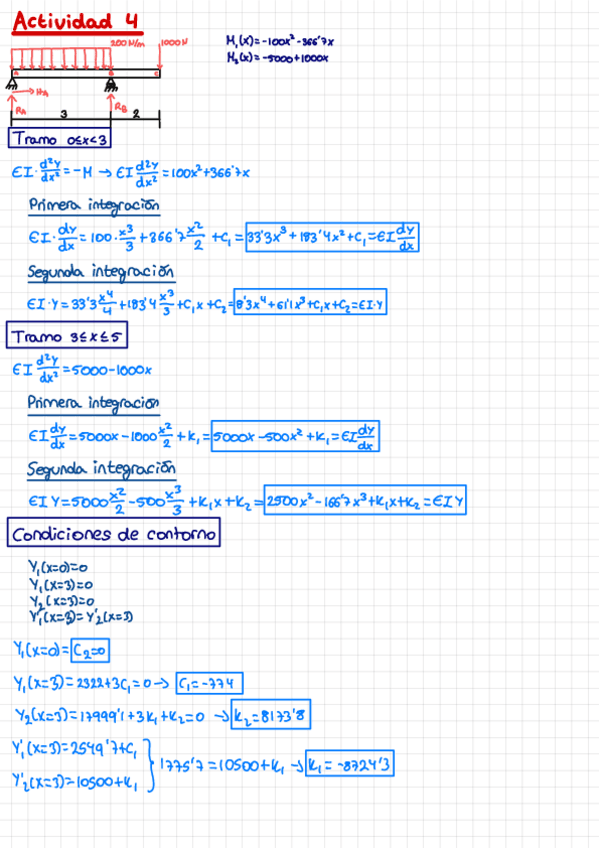 Actividad 4
200 N/m 1000 N
M₁(x)=-100x²-366'7x
M₂(x)=-5000+1000x
A B C
HA
RA RB
3 2
Tramo 0≤x<3
EI·d²y/dx²=-M → EI d²y/dx²=100x²+366'7x
Primera integración
EI·dy/dx=100·x³/3+366'7 x²/2+C₁=33'3x³+183'4x²+C₁=EI dy/dx
Segunda integración
EI·Y=33'3 x⁴/4+183'4 x³/3+C₁x+C₂=8'3x⁴+61'1x³+C₁x+C₂=EI·Y
Tramo 3≤x≤5
EI d²y/dx²=5000-1000x
Primera integración
EI dy/dx=5000x-1000 x²/2+K₁=5000x-500x²+K₁=EI dy/dx
Segunda integración
EIY=5000 x²/2-500 x³/3+K₁x+K₂=2500x²-166'7x³+K₁x+K₂=EIY
Condiciones de contorno
Y₁(x=0)=0
Y₁(x=3)=0
Y₂(x=3)=0
Y'₁(x=3)=Y'₂(x=3)
Y₁(x=0)=C₂=0
Y₁(x=3)=2322+3C₁=0→ C₁=-774
Y₂(x=3)=17999'1+3K₁+K₂=0 → K₂=8173'8
Y'₁(x=3)=2549'7+C₁
Y'₂(x=3)=10500+K₁
1775'7=10500+K₁→ K₁=-8724'3